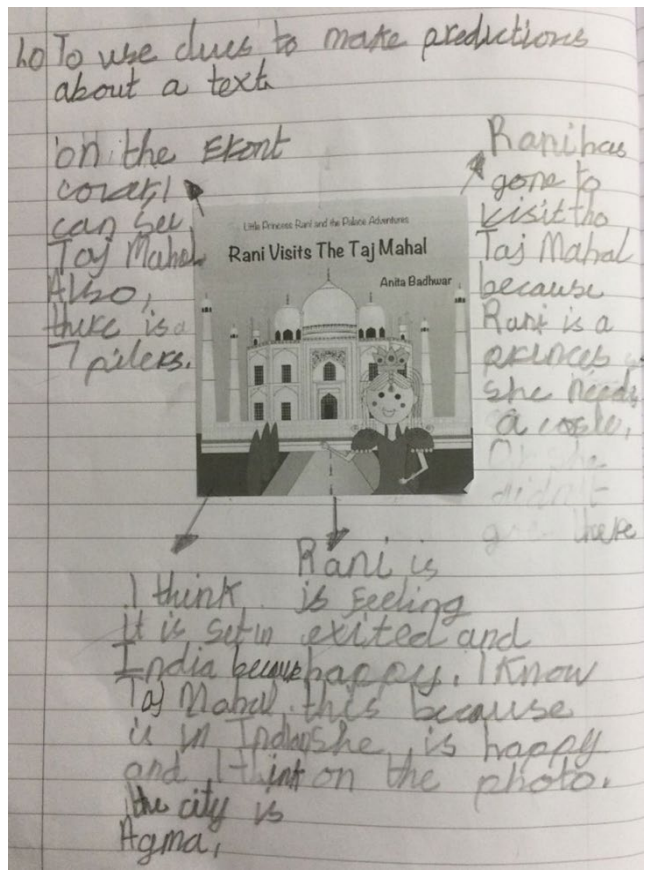 LO To use clues to make predictions
about a text
on the Front
covar, I
can see
Taj Mahal
Also,
there is a
7 pilers.
Little Princess Rani and the Palace Adventures
Rani Visits The Taj Mahal
Anita Badhwar
Rani has
gone to
visit the
Taj Mahal
because
Rani is a
princes
she needs
a casle,
Or she
didn't
there
I think
It is set in
India because
Taj Mahal
is in India
and I think
the city is
Agma,
Rani is
is feeling
exited and
happy. I know
this because
she is happy
on the photo.